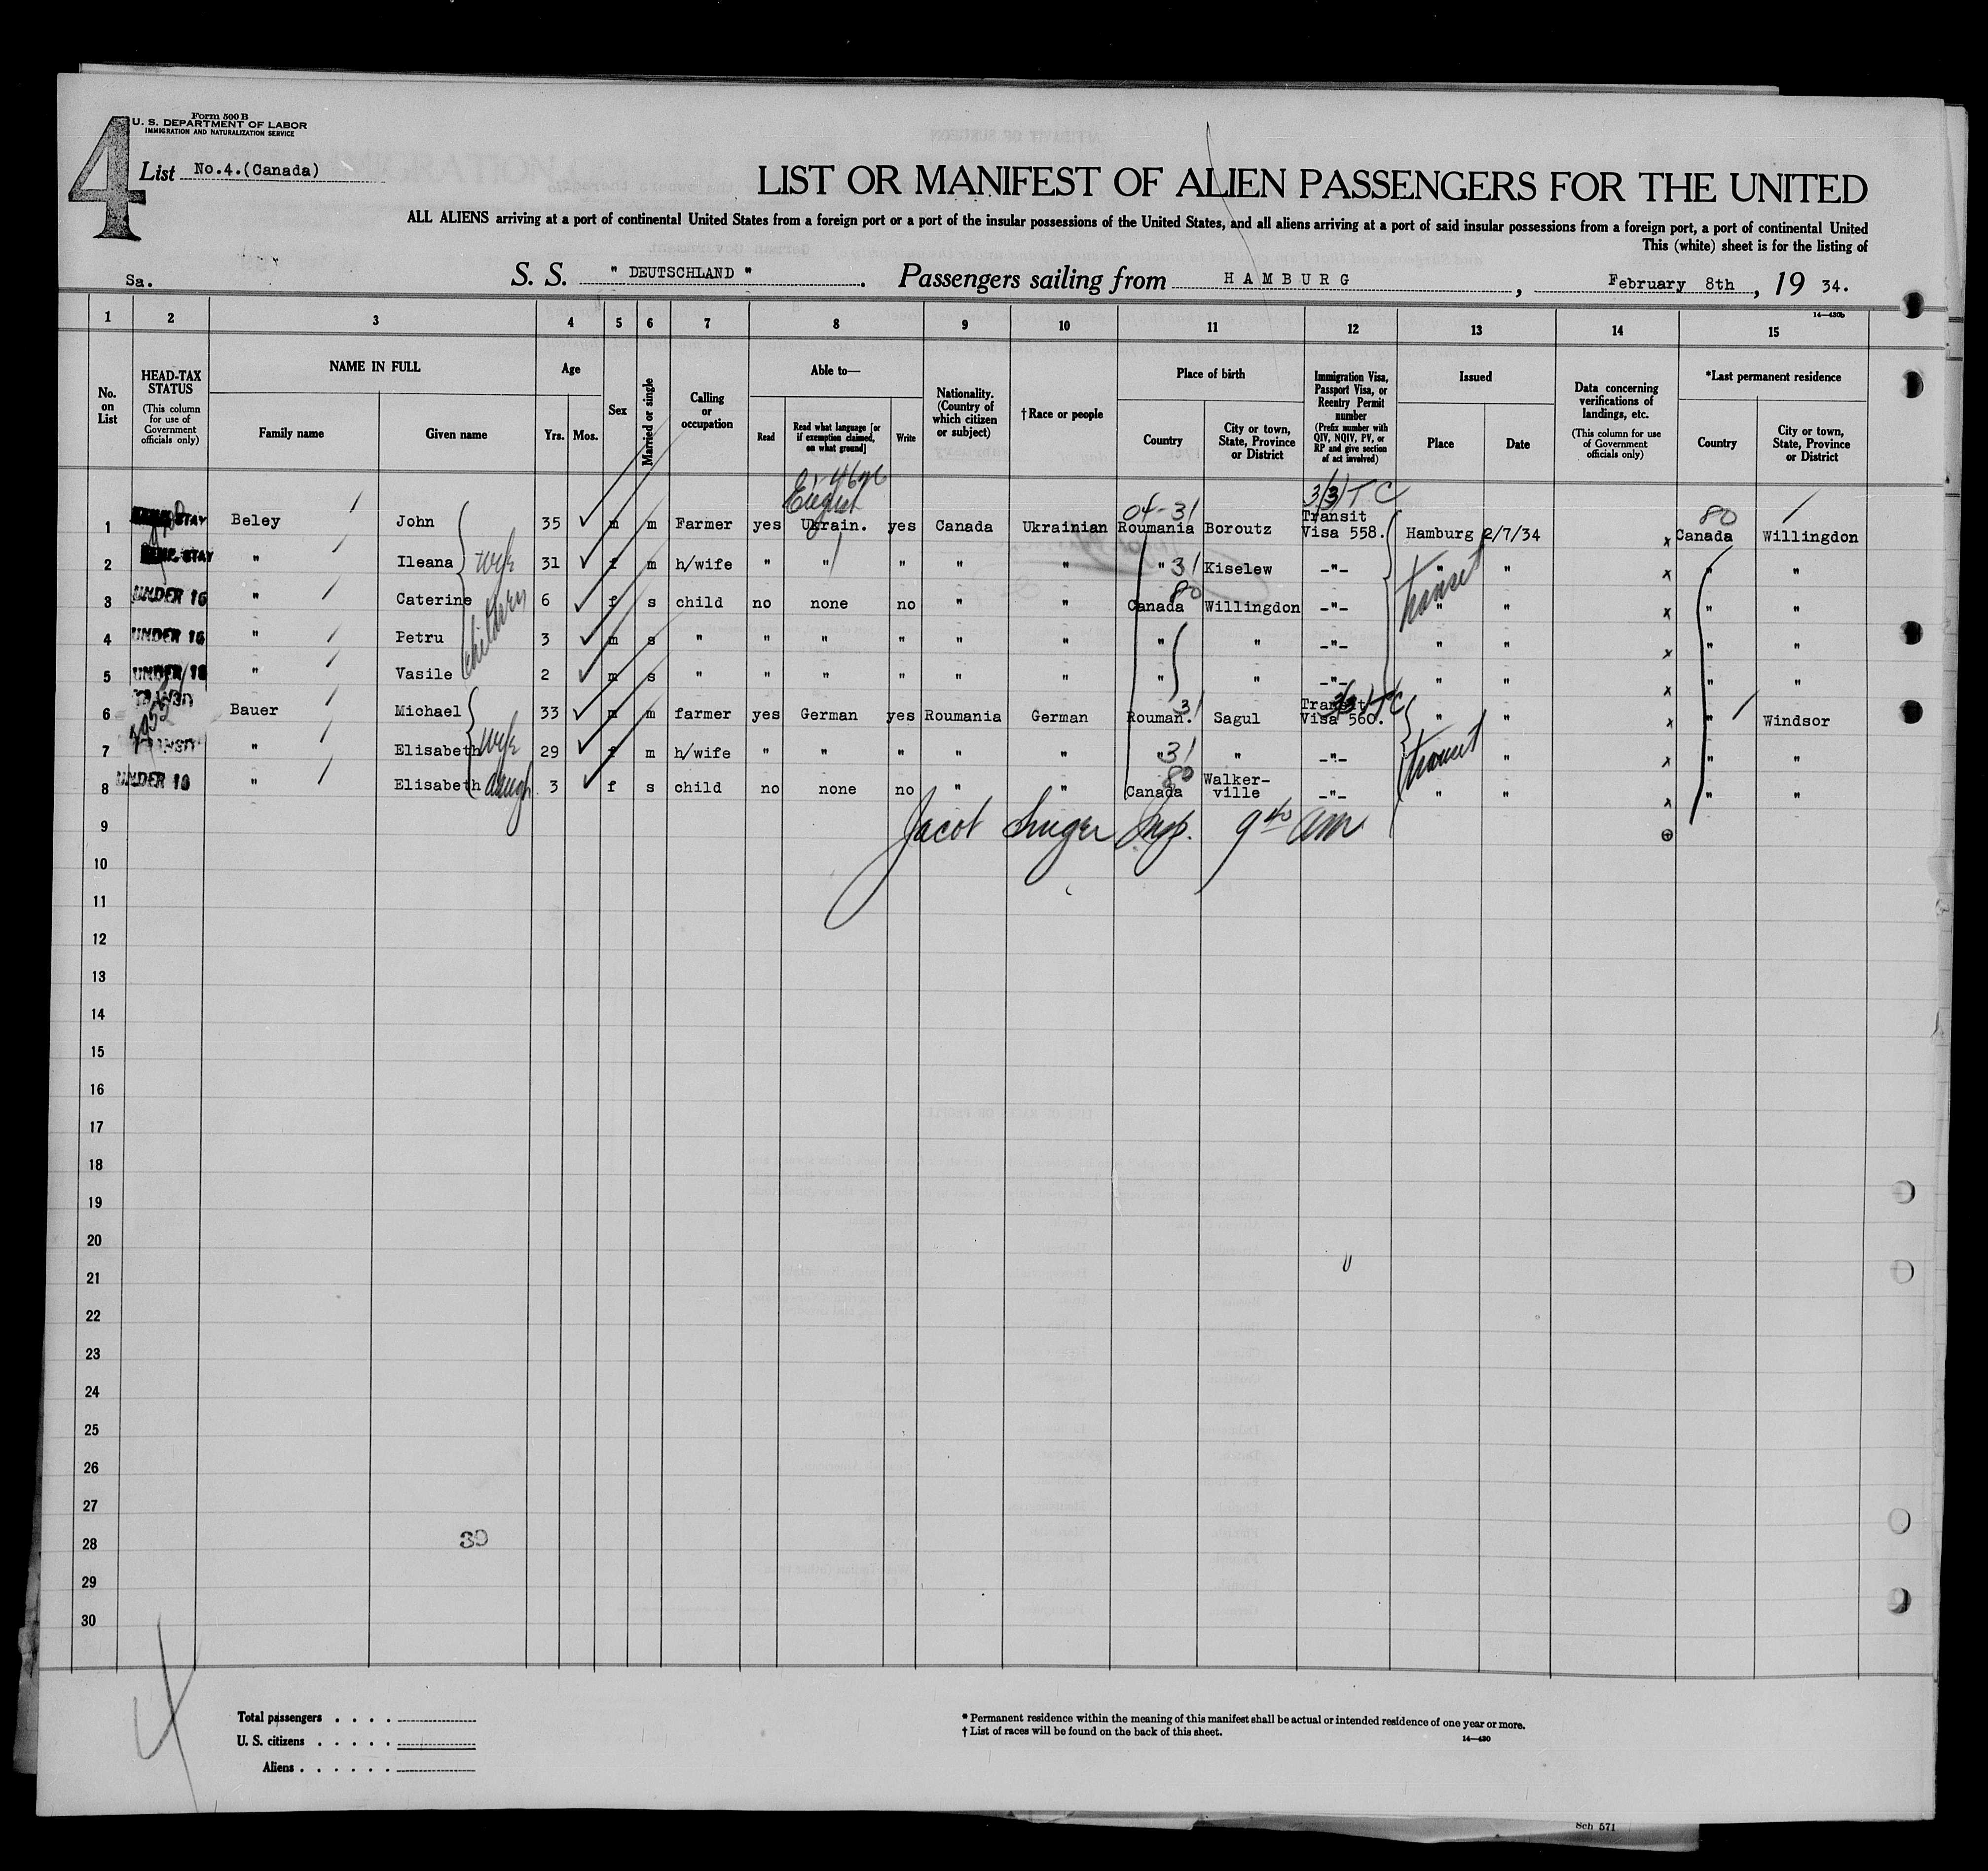 4
Form 500 B
U. S. DEPARTMENT OF LABOR
IMMIGRATION AND NATURALIZATION SERVICE
List No.4.(Canada)
LIST OR MANIFEST OF ALIEN PASSENGERS FOR THE UNITED
ALL ALIENS arriving at a port of continental United States from a foreign port or a port of the insular possessions of the United States, and all aliens arriving at a port of said insular possessions from a foreign port, a port of continental United
This (white) sheet is for the listing of
Sa. S. S. " DEUTSCHLAND ". Passengers sailing from HAMBURG, February 8th, 19 34.
14—430b
1 2 3 4 5 6 7 8 9 10 11 12 13 14 15
No. on List
HEAD-TAX STATUS (This column for use of Government officials only)
NAME IN FULL
Family name
Given name
Age
Yrs. Mos.
Sex
Married or single
Calling or occupation
Able to—
Read
Read what language [or if exemption claimed, on what ground]
Write
Nationality. (Country of which citizen or subject)
† Race or people
Place of birth
Country
City or town, State, Province or District
Immigration Visa, Passport Visa, or Reentry Permit number (Prefix number with QIV, NQIV, PV, or RP and give section of act involved)
Issued
Place
Date
Data concerning verifications of landings, etc. (This column for use of Government officials only)
*Last permanent residence
Country
City or town, State, Province or District
3/3/TC
04-31
80
1 STAY Beley John 35 m m Farmer yes Ukrain. yes Canada Ukrainian Roumania Boroutz Transit Visa 558. Hamburg 2/7/34 x Canada Willingdon
2 TEMP. STAY " Ileana wife 31 f m h/wife " " " " " " 31 Kiselew -"- " " x " "
3 UNDER 16 " Caterine 6 f s child no none no " " 80 Canada Willingdon -"- " " x " "
children
transit
4 UNDER 16 " Petru 3 m s " " " " " " " " -"- " " x " "
5 UNDER 16 " Vasile 2 m s " " " " " " " " -"- " " x " "
6 TRANSIT Bauer Michael 33 m m farmer yes German yes Roumania German Rouman. 31 Sagul Transit Visa 560. " " x " Windsor
7 TRANSIT " Elisabeth wife 29 f m h/wife " " " " " " 31 " -"- transit " x " "
8 UNDER 16 " Elisabeth daugh 3 f s child no none no " " 80 Canada Walker-ville -"- " " x " "
9 Jacob Singer Insp. 9 40 am
10
11
12
13
14
15
16
17
18
19
20
21
22
23
24
25
26
27
28 39
29
30
4
Total passengers . . . .
U. S. citizens . . . . .
Aliens . . . . . .
* Permanent residence within the meaning of this manifest shall be actual or intended residence of one year or more.
† List of races will be found on the back of this sheet.
14—430
Sch 571